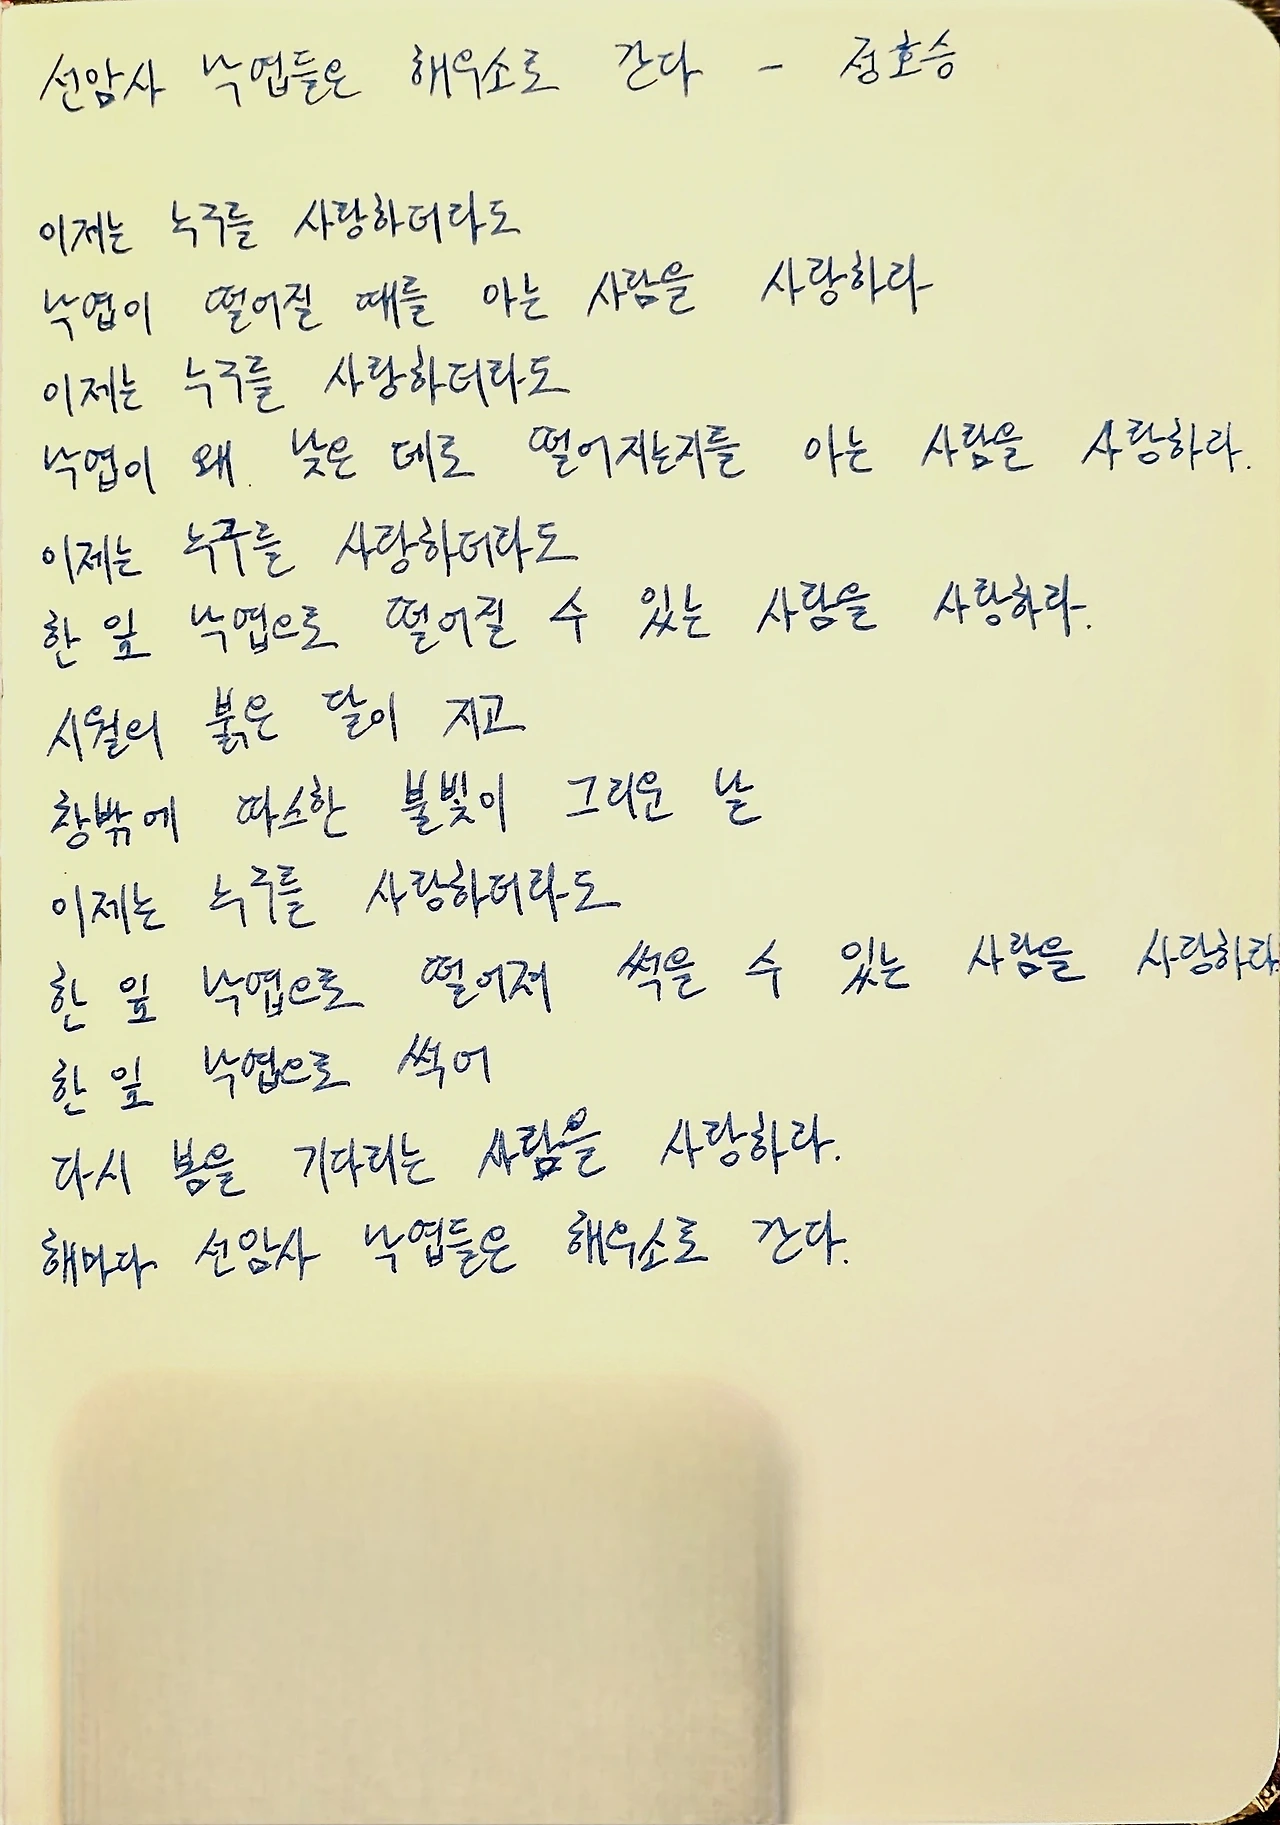 선암사 낙엽들은 해우소로 간다 - 정호승
이제는 누구를 사랑하더라도
낙엽이 떨어질 때를 아는 사람을 사랑하라
이제는 누구를 사랑하더라도
낙엽이 왜 낮은 데로 떨어지는지를 아는 사람을 사랑하라.
이제는 누구를 사랑하더라도
한 잎 낙엽으로 떨어질 수 있는 사람을 사랑하라.
시월의 붉은 달이 지고
창밖에 따스한 불빛이 그리운 날
이제는 누구를 사랑하더라도
한 잎 낙엽으로 떨어져 썩을 수 있는 사람을 사랑하라
한 잎 낙엽으로 썩어
다시 봄을 기다리는 사람을 사랑하라.
해마다 선암사 낙엽들은 해우소로 간다.